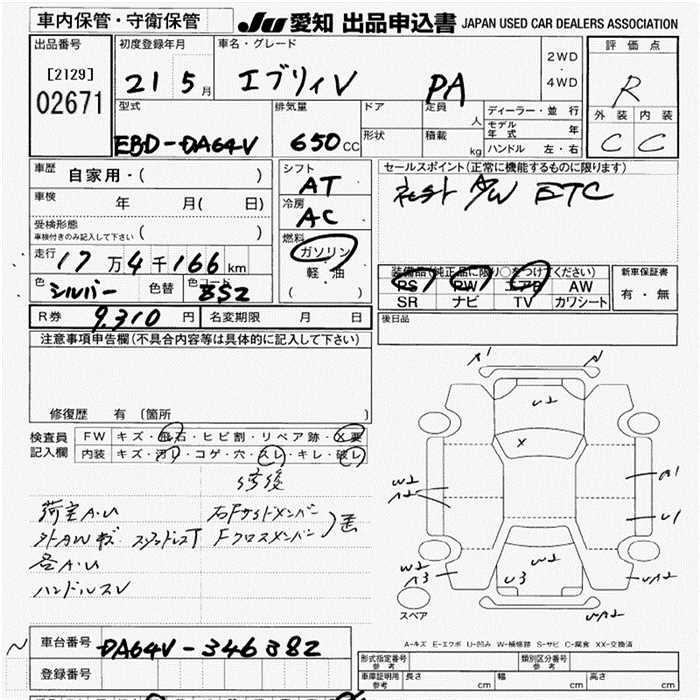 車内保管・守衛保管
JU 愛知 出品申込書 JAPAN USED CAR DEALERS ASSOCIATION
出品番号 [2129] 02671
初度登録年月 21 5月
車名・グレード エブリィV PA
2WD・4WD
評価点 R
外装 C 内装 C
型式 EBD-DA64V
排気量 650cc
ドア 形状
定員 人 積載 kg
ディーラー・並行
モデル年式 年
ハンドル 左・右
車歴 自家用・( )
車検 年 月( 日)
受検形態 車検付きのみ記入して下さい ( )
走行 17万4千166km
色 シルバー 色替 色コード BS2
シフト AT
冷房 AC
燃料 ガソリン 軽・油 ( )
セールスポイント(正常に機能するものに限ります)
社外 AW ETC
装備品(純正品に限り○をつけてください)
PS PW エアB AW
SR ナビ TV カワシート
新車保証書 有・無
後日品
R券 9,310円 名変期限 月 日
注意事項申告欄(不具合内容等は具体的に記入して下さい)
修復歴 有 〔箇所 〕
検査員記入欄
FW キズ・飛石・ヒビ割・リペア跡・X要
内装 キズ・汚レ・コゲ・穴・スレ・キレ・破レ
修復
荷室A.U 右Fサイドメンバー
外AWキズ Fクロスメンバー
各A.U
ハンドルスレ
A1
U2
X
A1
U1
W2
A2
W2
A3
U3
W2
UA2
UA2
スペア
A-キズ E-エクボ U-凹み W-補修跡 S-サビ C-腐食 XX-交換済
車台番号 DA64V-346382
登録番号
形式指定番号 参考
類別区分番号 参考
車庫証明用 参考 長さ cm 幅 cm 高さ cm